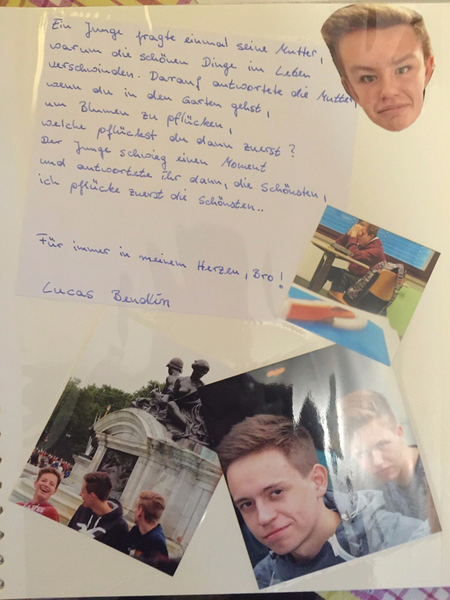 Ein Junge fragte einmal seine Mutter,
warum die schönen Dinge im Leben
verschwinden. Darauf antwortete die Mutter,
wenn du in den Garten gehst,
um Blumen zu pflücken,
welche pflückst du dann zuerst?
Der Junge schwieg einen Moment
und antwortete ihr dann, die Schönsten,
ich pflücke zuerst die Schönsten..
Für immer in meinem Herzen, Bro!
Lucas Bendlin